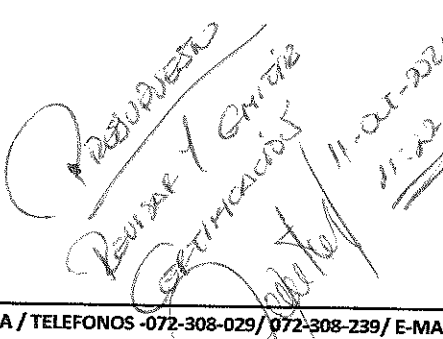 PRESUPUESTO
REVISAR Y EMITIR
CERTIFICACIÓN
11-Oct-202
11:22
A / TELEFONOS -072-308-029/ 072-308-239/ E-MA